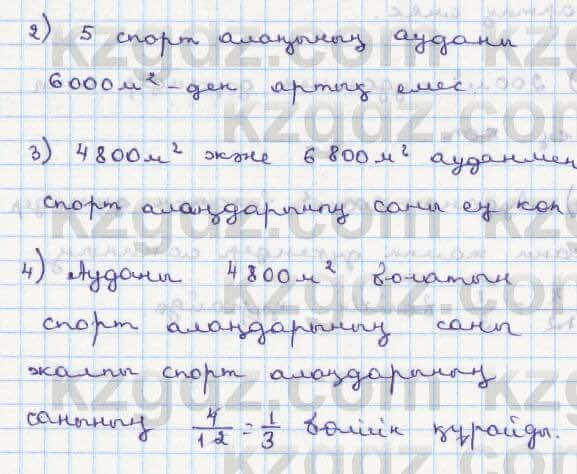 2) 5 спорт алаңының ауданы
6000м²-ден артық емес
3) 4800м² және 6800м² ауданмен
спорт алаңдарының саны ең көп
4) Ауданы 4800м² болатын
спорт алаңдарының саны
жалпы спорт алаңдарының
санының 4/12 = 1/3 бөлігін құрайды.
kzgdz.com